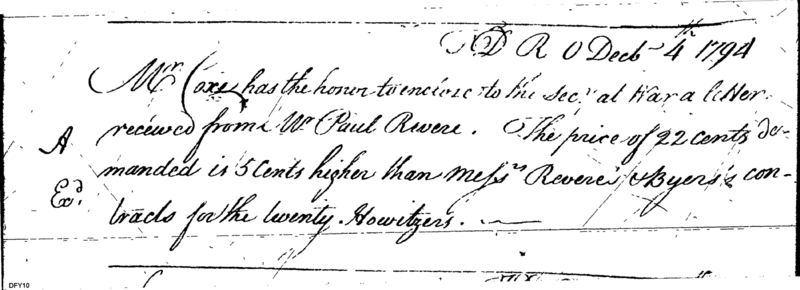 T D R O Decb 4th 1794
Mr. Coxe has the honor to enclose to the Secy at War a letter
received from Mr Paul Revere. The price of 22 cents de-
A
manded is 5 Cents higher than Messrs Revere's & Byers's con-
Exd.
tracts for the twenty Howitzers.
DFY10